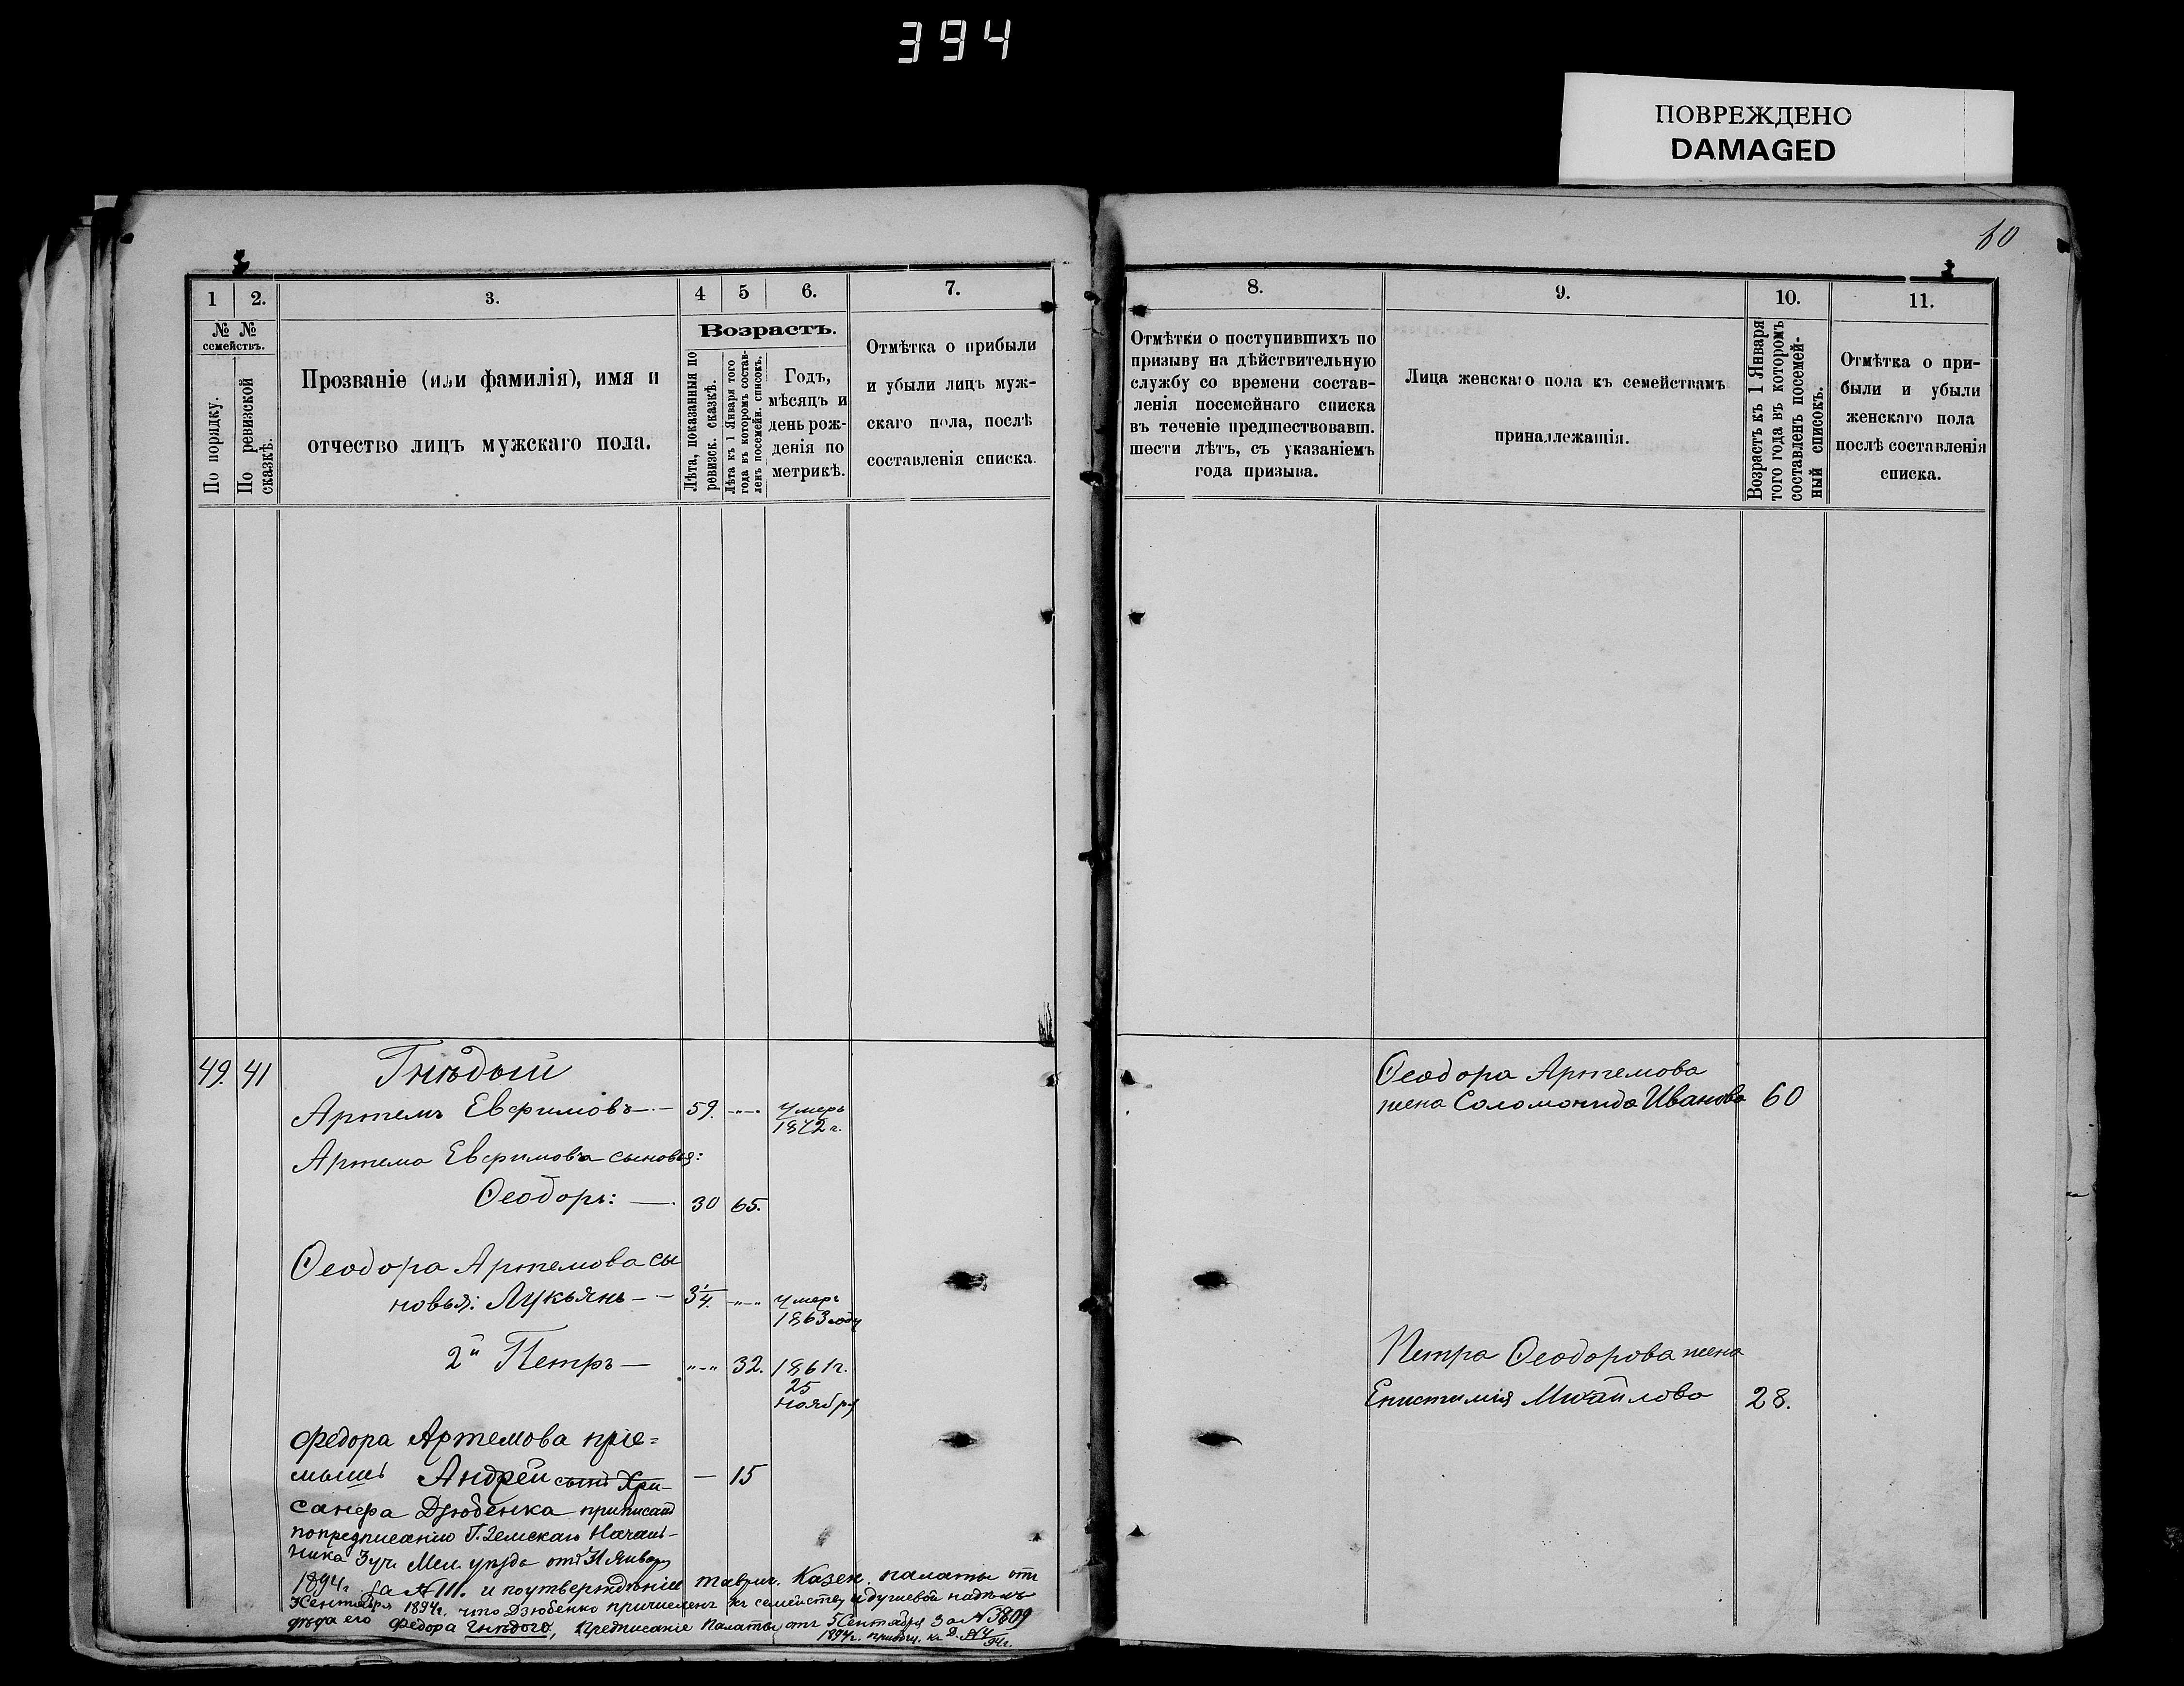 394
ПОВРЕЖДЕНО
DAMAGED
60
1
2.
3.
4
5
6.
7.
№ №
семействъ.
По порядку.
По ревизской
сказкѣ.
Прозваніе (или фамилія), имя и
отчество лицъ мужскаго пола.
Возрастъ.
Лѣта, показанныя по
ревизск. сказкѣ.
Лѣта къ 1 Января того
года въ которомъ состав-
ленъ посемейн. списокъ.
Годъ,
мѣсяцъ и
день рож-
денія по
метрикѣ.
Отмѣтка о прибыли
и убыли лицъ муж-
скаго пола, послѣ
составленія списка.
8.
9.
10.
11.
Отмѣтки о поступившихъ по
призыву на дѣйствительную
службу со времени состав-
ленія посемейнаго списка
въ теченіе предшествовавш.
шести лѣтъ, съ указаніемъ
года призыва.
Лица женскаго пола къ семействамъ
принадлежащія.
Возрастъ къ 1 Января
того года въ которомъ
составленъ посемей-
ный списокъ.
Отмѣтка о при-
были и убыли
женскаго пола
послѣ составленія
списка.
49. 41 Гнѣдый
Артемъ Евфимовъ — 59. -„- умеръ
1872 г.
Артема Евфимова сыновья:
Ѳеодоръ: — 30 65.
Ѳеодора Артемова сы
новья: Лукьянъ - - 3 1/4. -„- умеръ
1863 году
2й Петръ — „-„ 32. 1861г.
25
ноября
Федора Артемова пріе=
мышъ Андрей сынъ Хри- — 15
санфа Дзюбенка приписанъ
по предписанію Г. Земскаго Началь-
ника 3 уч. Мел. уѣзда отъ 31 Января
1894г. за № 111. и по утвержденію Таврич. Казен. палаты отъ
Сентября 1894г. что Дзюбенко причисленъ къ семейству и душевой надѣлъ
дѣда его Федора Гнѣдого, Предписаніе Палаты отъ 5 Сентября за № 3809
1894г. приобщ. къ Д. № 4/94г.
Ѳеодора Артемова
жена Соломонида Иванова 60
Петра Ѳеодорова жена
Епистимія Михайлова 28.